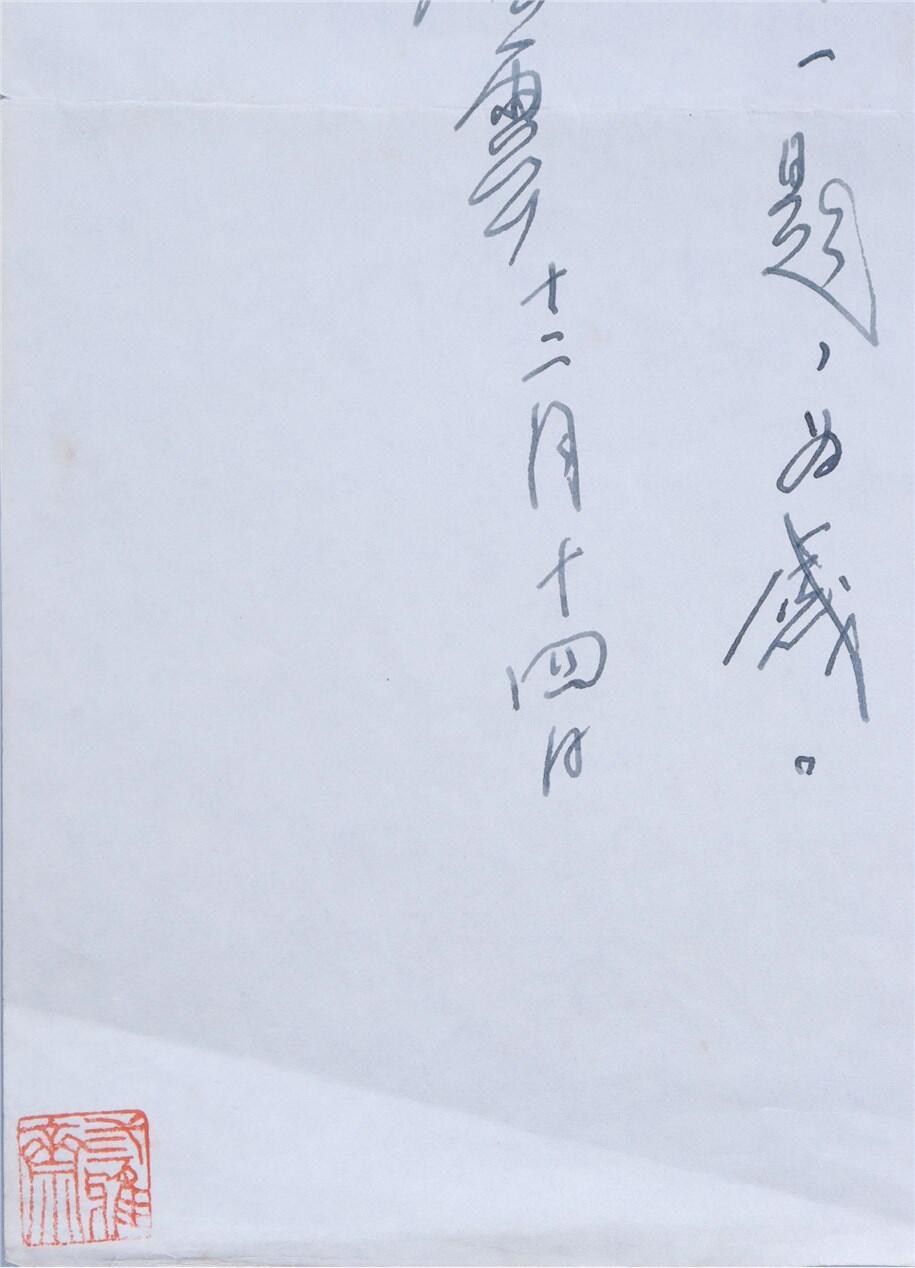 一題，为感。
十二月十四日